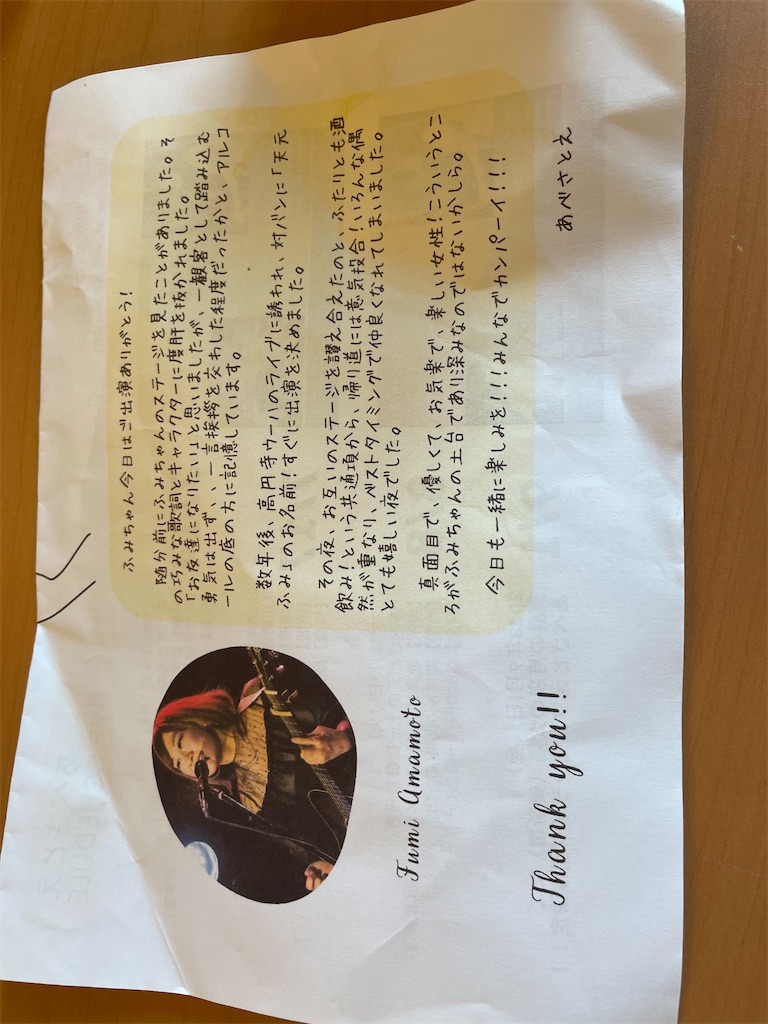 ふみちゃん今日はご出演ありがとう！
随分前にふみちゃんのステージを見たことがありました。そ
の巧みな歌詞とキャラクターに度肝を抜かれました。
「お友達になりたい」と思いましたが、一観客として踏み込む
勇気は出ず、、一言挨拶を交わした程度だったかと、アルコ
ールの底の方に記憶しています。
数年後、高円寺ウーハのライブに誘われ、対バンに「天元
ふみ」のお名前！すぐに出演を決めました。
その夜、お互いのステージを讃え合えたのと、ふたりとも酒
飲み！という共通項から、帰り道には意気投合！いろんな偶
然が重なり、ベストタイミングで仲良くなれてしまいました。
とても嬉しい夜でした。
真面目で、優しくて、お気楽で、楽しい女性！こういうとこ
ろがふみちゃんの土台であり深みなのではないかしら。
今日も一緒に楽しみを！！！みんなでカンパーイ！！！
あべさとえ
Fumi Amamoto
Thank you!!